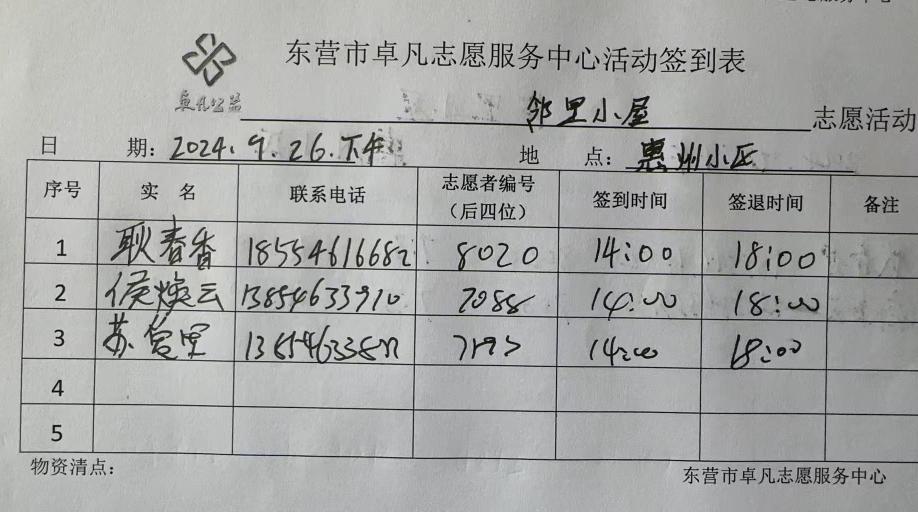 东营市卓凡志愿服务中心活动签到表
卓凡公益
邻里小屋 志愿活动
日 期：2024.9.26.下午 地 点：惠州小区
序号 实 名 联系电话 志愿者编号（后四位） 签到时间 签退时间 备注
1 耿春香 18554616682 8020 14:00 18:00
2 侯焕云 13854633910 7088 14:00 18:00
3 苏 14:00 18:00
4
5
物资清点： 东营市卓凡志愿服务中心